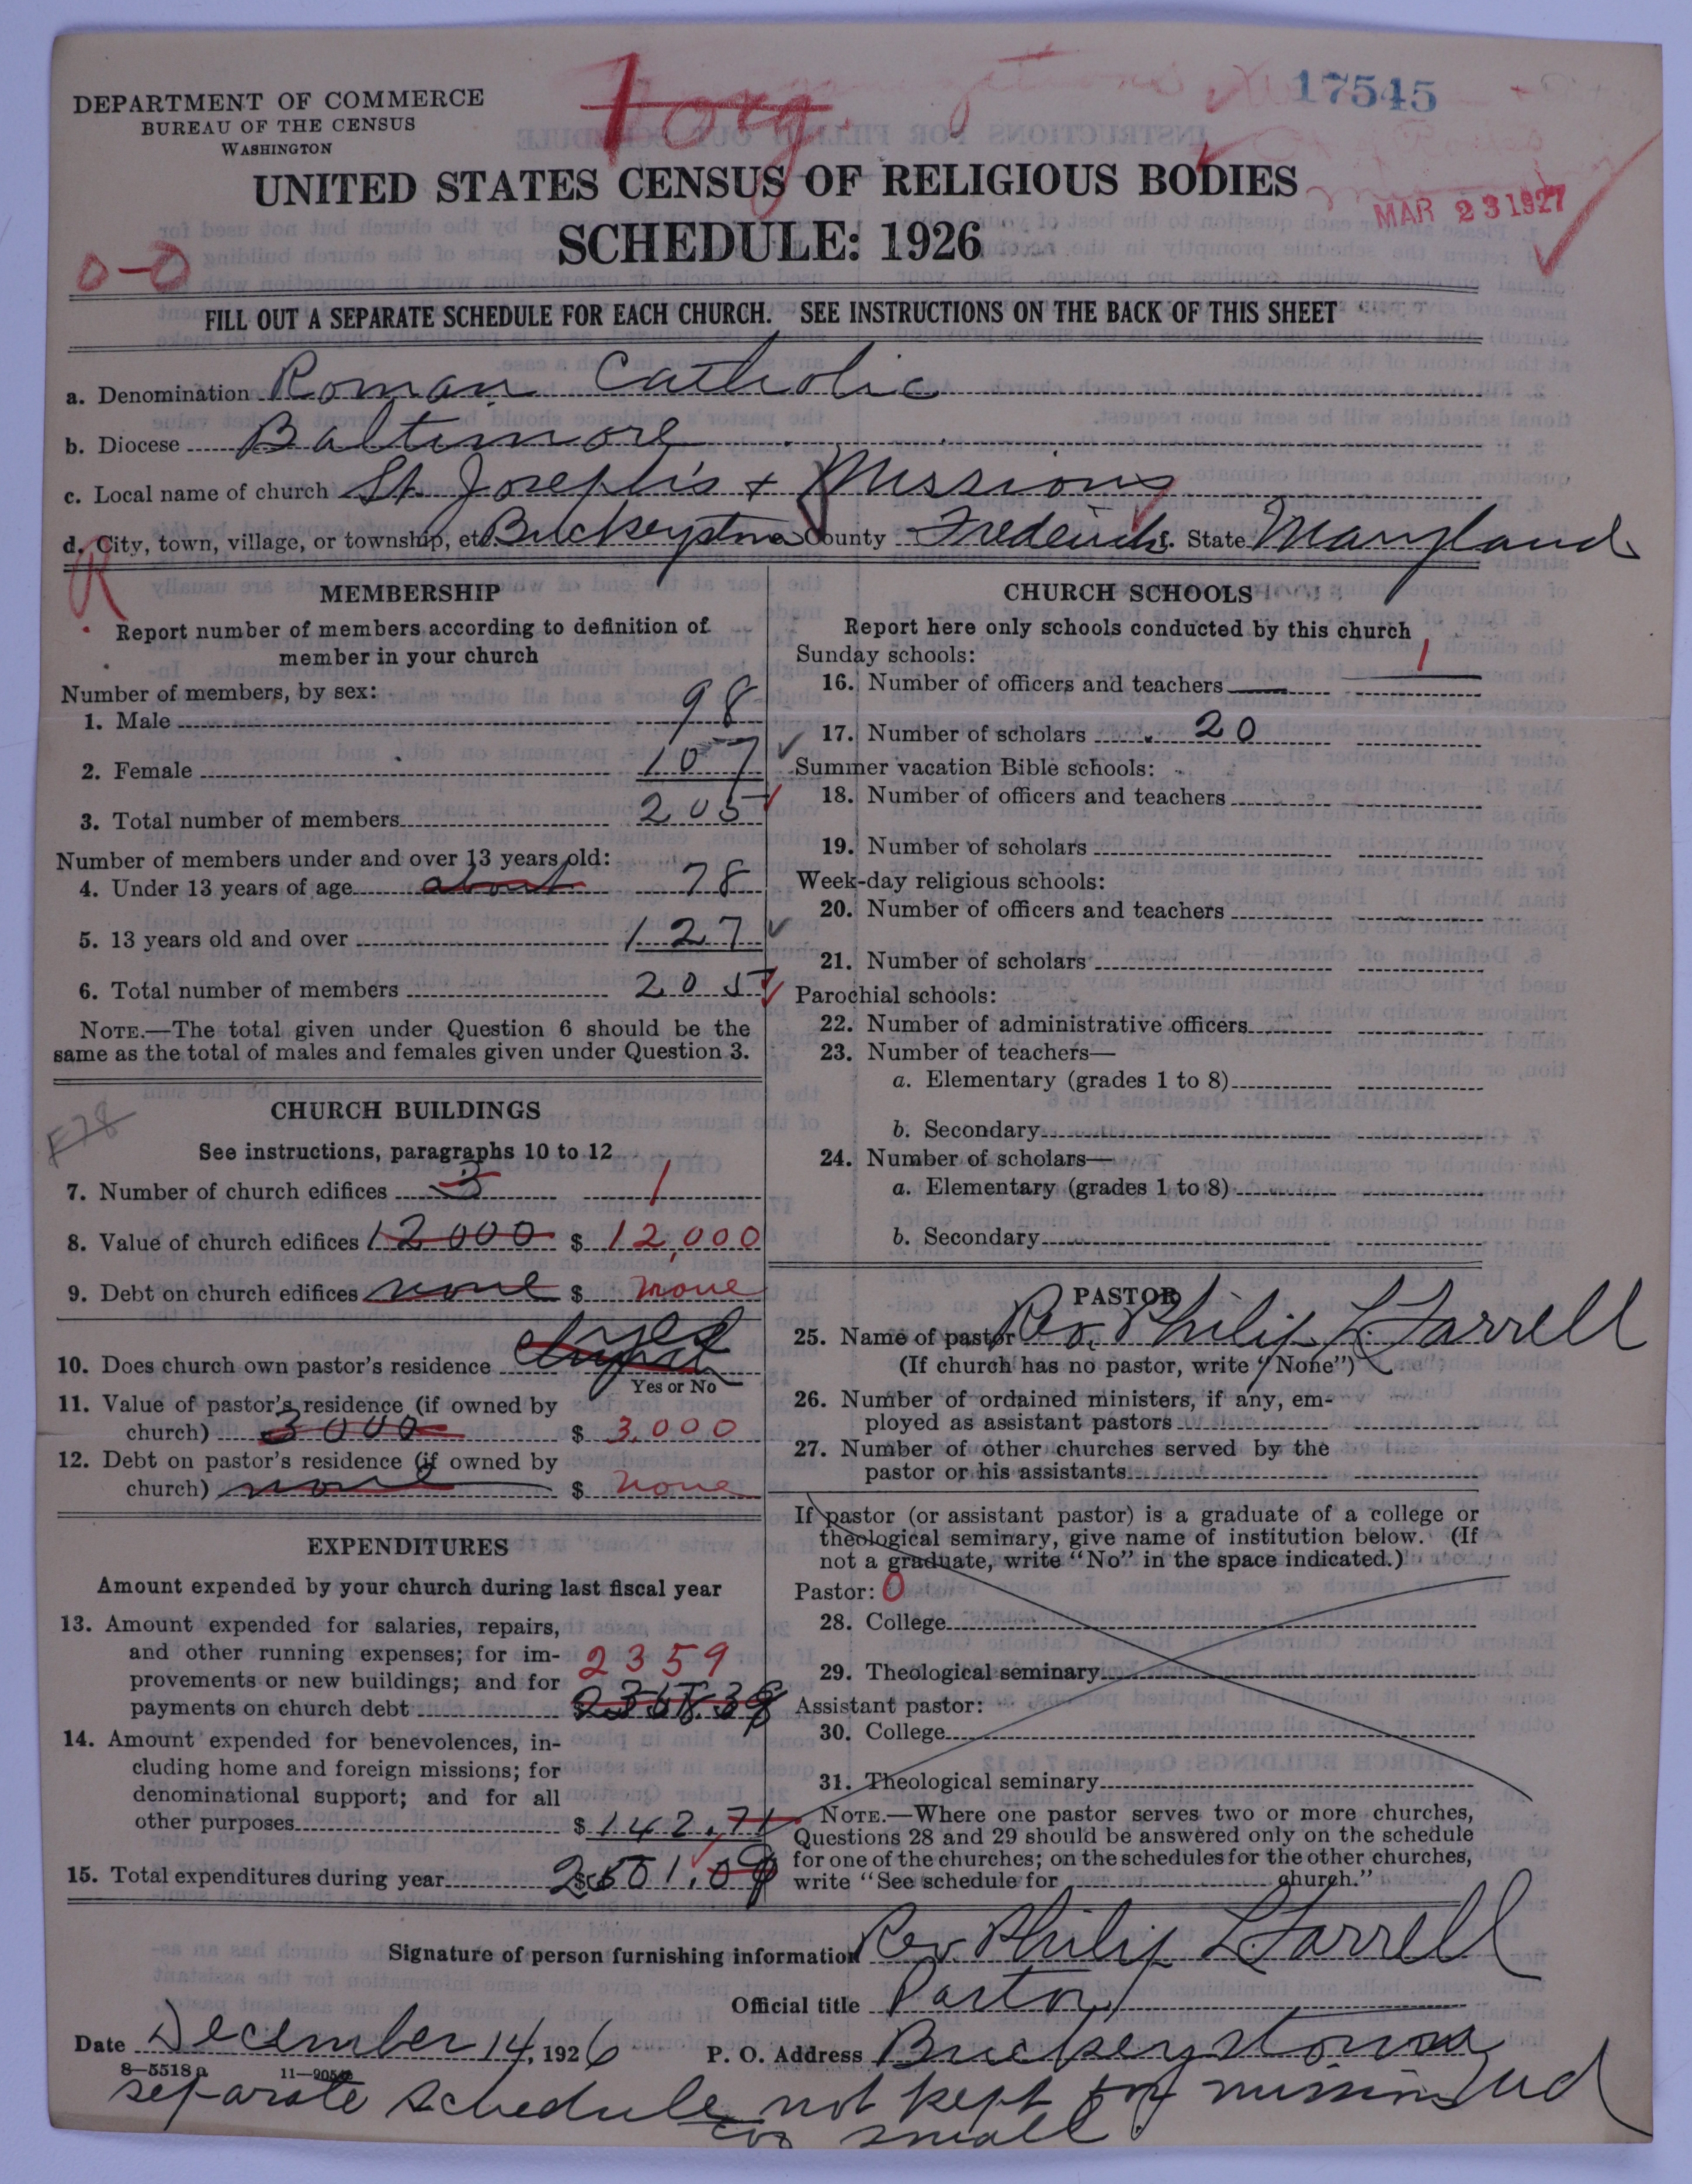 1 org.
17545
DEPARTMENT OF COMMERCE
BUREAU OF THE CENSUS
WASHINGTON
UNITED STATES CENSUS OF RELIGIOUS BODIES
MAR 23 1927
SCHEDULE: 1926
0-0
FILL OUT A SEPARATE SCHEDULE FOR EACH CHURCH. SEE INSTRUCTIONS ON THE BACK OF THIS SHEET
a. Denomination Roman Catholic
b. Diocese Baltimore
c. Local name of church St. Joseph's + Missions
d. City, town, village, or township, etc. Buckeystown County Frederick State Maryland
R
MEMBERSHIP
Report number of members according to definition of
member in your church
Number of members, by sex:
1. Male 98
2. Female 107
3. Total number of members 205
Number of members under and over 13 years old:
4. Under 13 years of age about 78
5. 13 years old and over 127
6. Total number of members 205
NOTE.—The total given under Question 6 should be the
same as the total of males and females given under Question 3.
CHURCH BUILDINGS
See instructions, paragraphs 10 to 12
7. Number of church edifices 3 1
8. Value of church edifices 12000 $ 12,000
9. Debt on church edifices none $ none
10. Does church own pastor's residence yes
Yes or No
11. Value of pastor's residence (if owned by
church) 3000 $ 3,000
12. Debt on pastor's residence (if owned by
church) none $ none
EXPENDITURES
Amount expended by your church during last fiscal year
13. Amount expended for salaries, repairs,
and other running expenses; for im-
provements or new buildings; and for 2359
payments on church debt $ 2358.38
14. Amount expended for benevolences, in-
cluding home and foreign missions; for
denominational support; and for all
other purposes $ 142.71
15. Total expenditures during year $ 2501.09
CHURCH SCHOOLS
Report here only schools conducted by this church
Sunday schools: 1
16. Number of officers and teachers
17. Number of scholars 20
Summer vacation Bible schools:
18. Number of officers and teachers
19. Number of scholars
Week-day religious schools:
20. Number of officers and teachers
21. Number of scholars
Parochial schools:
22. Number of administrative officers
23. Number of teachers—
a. Elementary (grades 1 to 8)
b. Secondary
24. Number of scholars—
a. Elementary (grades 1 to 8)
b. Secondary
PASTOR
25. Name of pastor Rev. Philip L Farrell
(If church has no pastor, write "None")
26. Number of ordained ministers, if any, em-
ployed as assistant pastors
27. Number of other churches served by the
pastor or his assistants
If pastor (or assistant pastor) is a graduate of a college or
theological seminary, give name of institution below. (If
not a graduate, write "No" in the space indicated.)
Pastor: 0
28. College
29. Theological seminary
Assistant pastor:
30. College
31. Theological seminary
NOTE.—Where one pastor serves two or more churches,
Questions 28 and 29 should be answered only on the schedule
for one of the churches; on the schedules for the other churches,
write "See schedule for church."
Signature of person furnishing information Rev. Philip L Farrell
Official title Pastor
Date December 14, 1926 P. O. Address Buckeystown
Md
8—5518a 11—9054
separate schedule not kept for missions
too small.